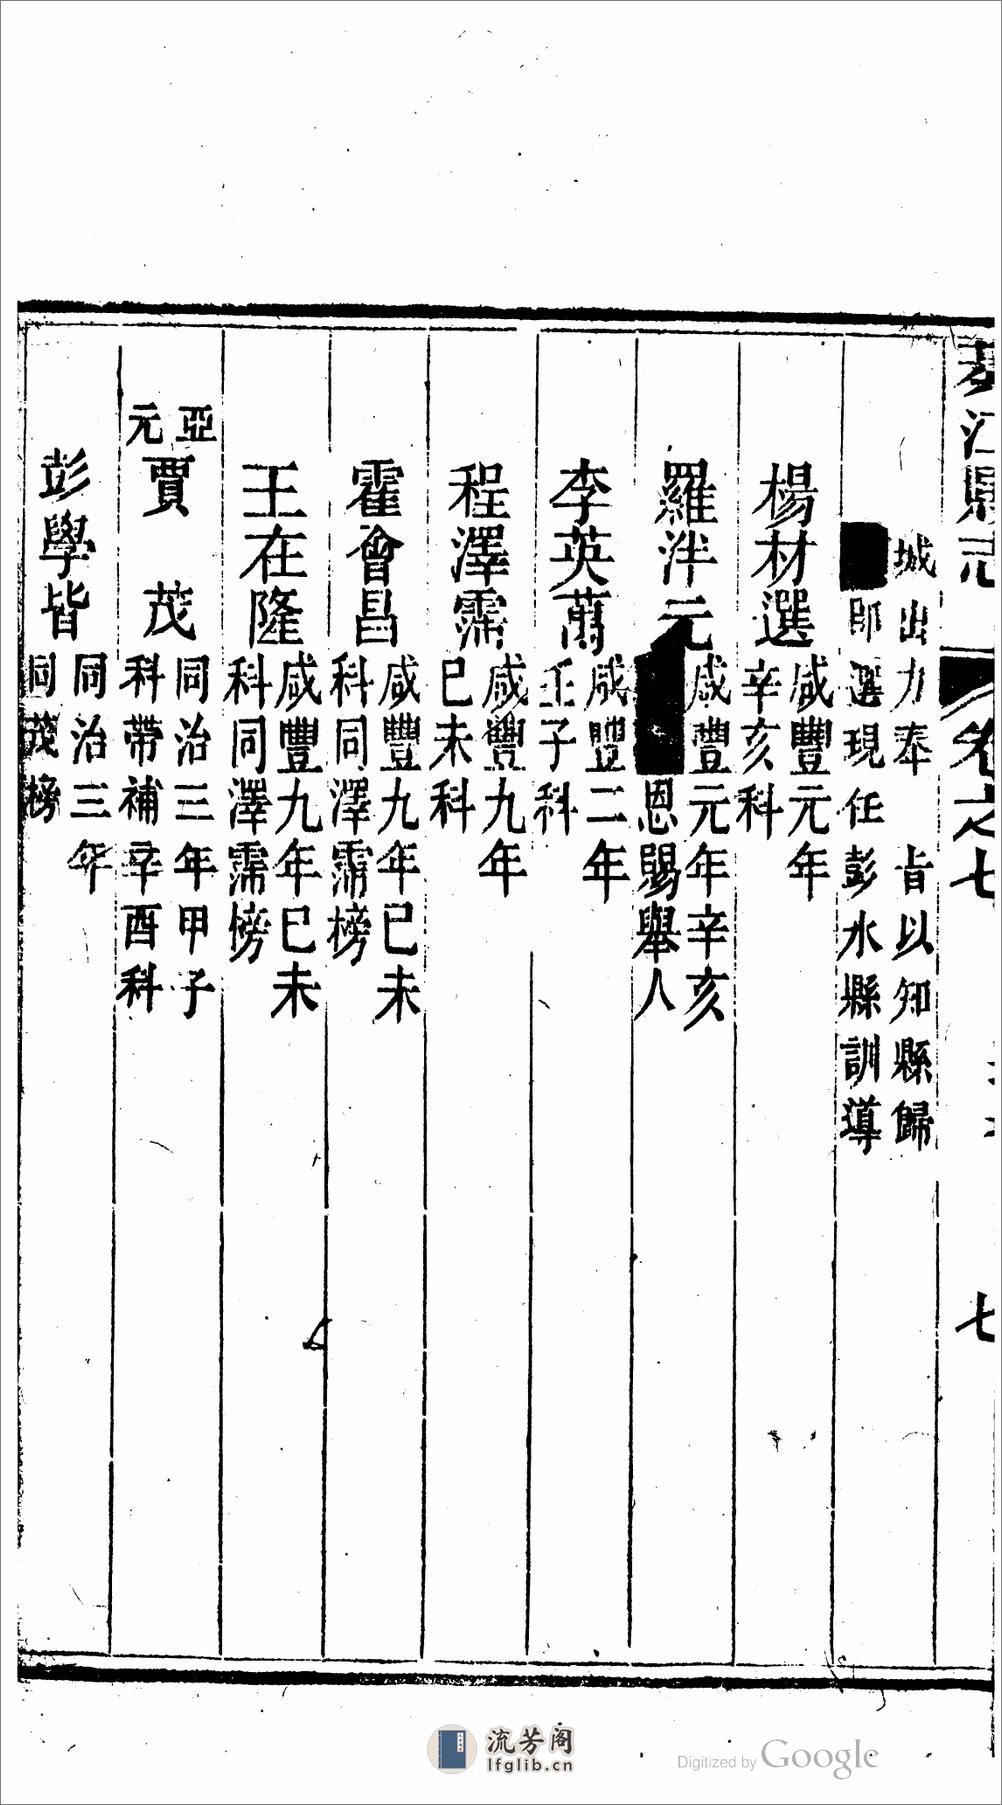 江縣志
卷之七
七
城出力奉 旨以知縣歸
即選現任彭水縣訓導
楊材選 咸豐元年
辛亥科
羅泮元 咸豐元年辛亥
恩賜舉人
李英 咸豐二年
壬子科
程澤霈 咸豐九年
己未科
霍會昌 咸豐九年己未
科同澤霈榜
王在隆 咸豐九年己未
科同澤霈榜
亞元 賈茂 同治三年甲子
科帶補辛酉科
彭學皆 同治三年
同茂榜
流芳阁
lfglib.cn
Digitized by Google